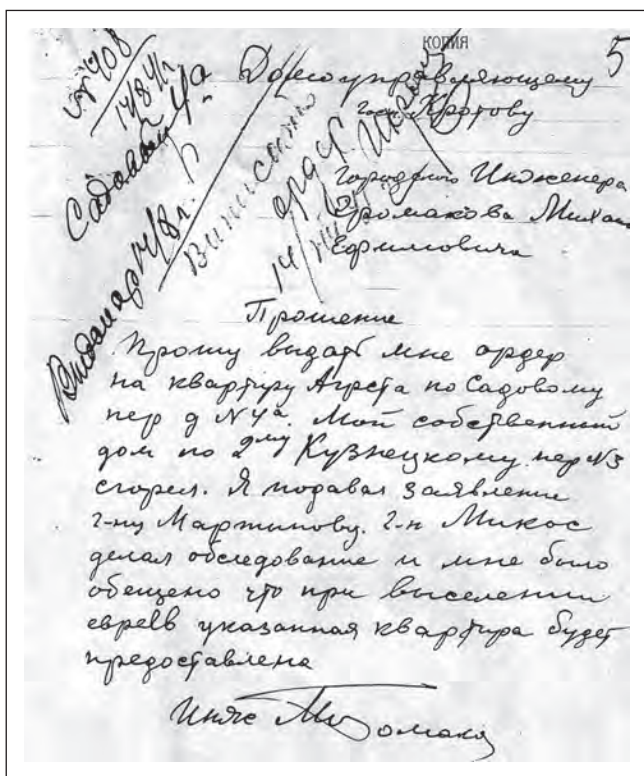 КОПИЯ
5
№ 408
14/8 41 г.
Садовый 4а
Видан ор 14/8 г.
Виписати
ордер
14
Домоуправляющему
гос. Кротову
Городского Инженера
Громакова Михаи
Ефимовича
Прошение
Прошу выдать мне ордер
на квартиру Агреста по Садовому
пер д N 4а. Мой собственний
дом по 2му Кузнецкому пер N3
сгорел. Я подавал заявление
г-ну Мартинову. г-н Микос
делал обследование и мне было
обещено что при выселении
евреев указанная квартира будет
предоставлена
Инж МГромаков